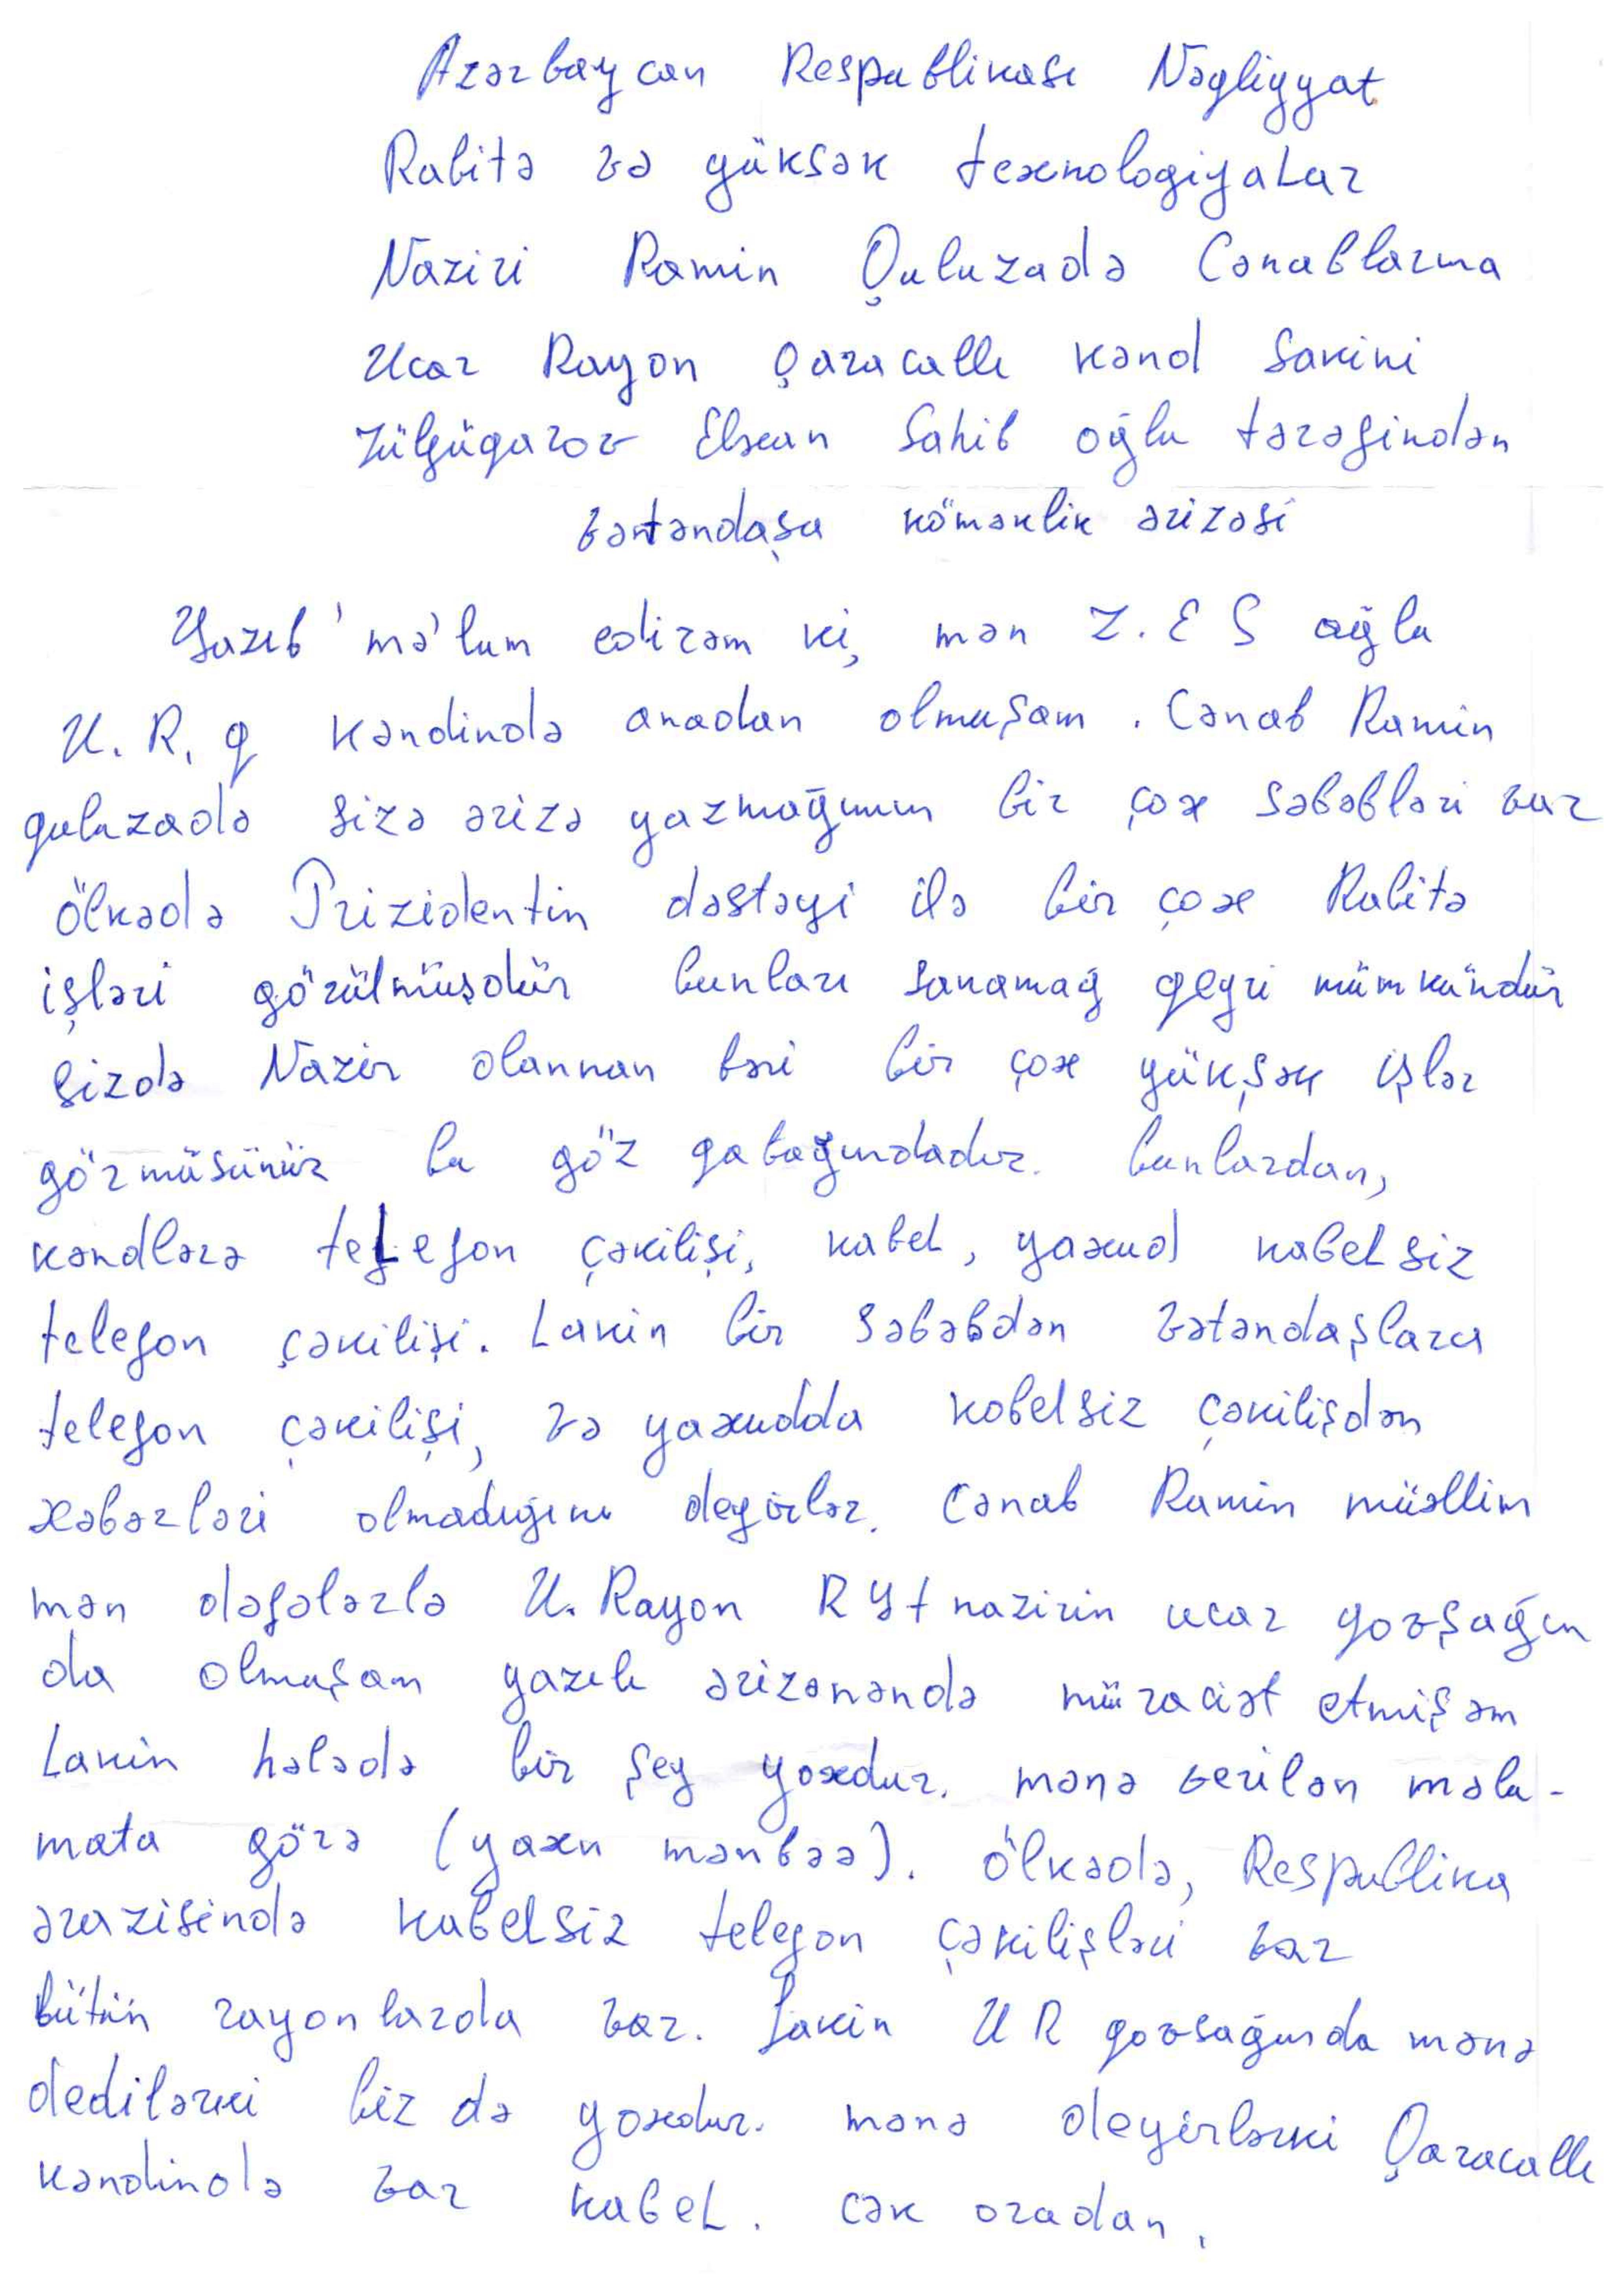 Azərbaycan Respublikası Nəgliyyat
Rabitə və yüksək texnologiyalar
Naziri Ramin Quluzadə Cənablarına
Ucar Rayon Qaracallı kənd sakini
Zülfüqarov Elxan Sahib oğlu tərəfindən
vətəndaşa köməklik ərizəsi
Yazıb mə'lum edirəm ki, mən Z. E S oğlu
U. R. q kəndində anadan olmuşam. Cənab Ramin
quluzadə sizə ərizə yazmağımın bir çox səbəbləri var
ölkədə Prizidentin dəstəyi ilə bir çox Rabitə
işləri görülmüşdür bunları sanamağ qeyri mümkündür
sizdə Nazir olannan bəri bir çox yükşək işlər
görmüsünüz bu göz qabağındadır. bunlardan,
kəndlərə telefon çəkilişi, kabel, yaxud kabelsiz
telefon çəkilişi. Lakin bir səbəbdən vətəndaşlara
telefon çəkilişi, və yaxudda kabelsiz çəkilişdən
xəbərləri olmadığını deyirlər. Cənab Ramin müəllim
mən dəfələrlə U. Rayon RYt nazirin ucar qovşağın
da olmuşam yazılı ərizənəndə müraciət etmişəm
Lakin hələdə bir şey yoxdur. mənə verilən məlu-
mata görə (yaxın mənbəə). ölkədə, Respublika
ərazisində kabelsiz telefon çəkilişləri var
bütün rayonlarda var. Lakin U R qovsağında mənə
dedilərki biz də yoxdur. mənə deyirlərki Qaracallı
kəndində var kabel. cək oradan.